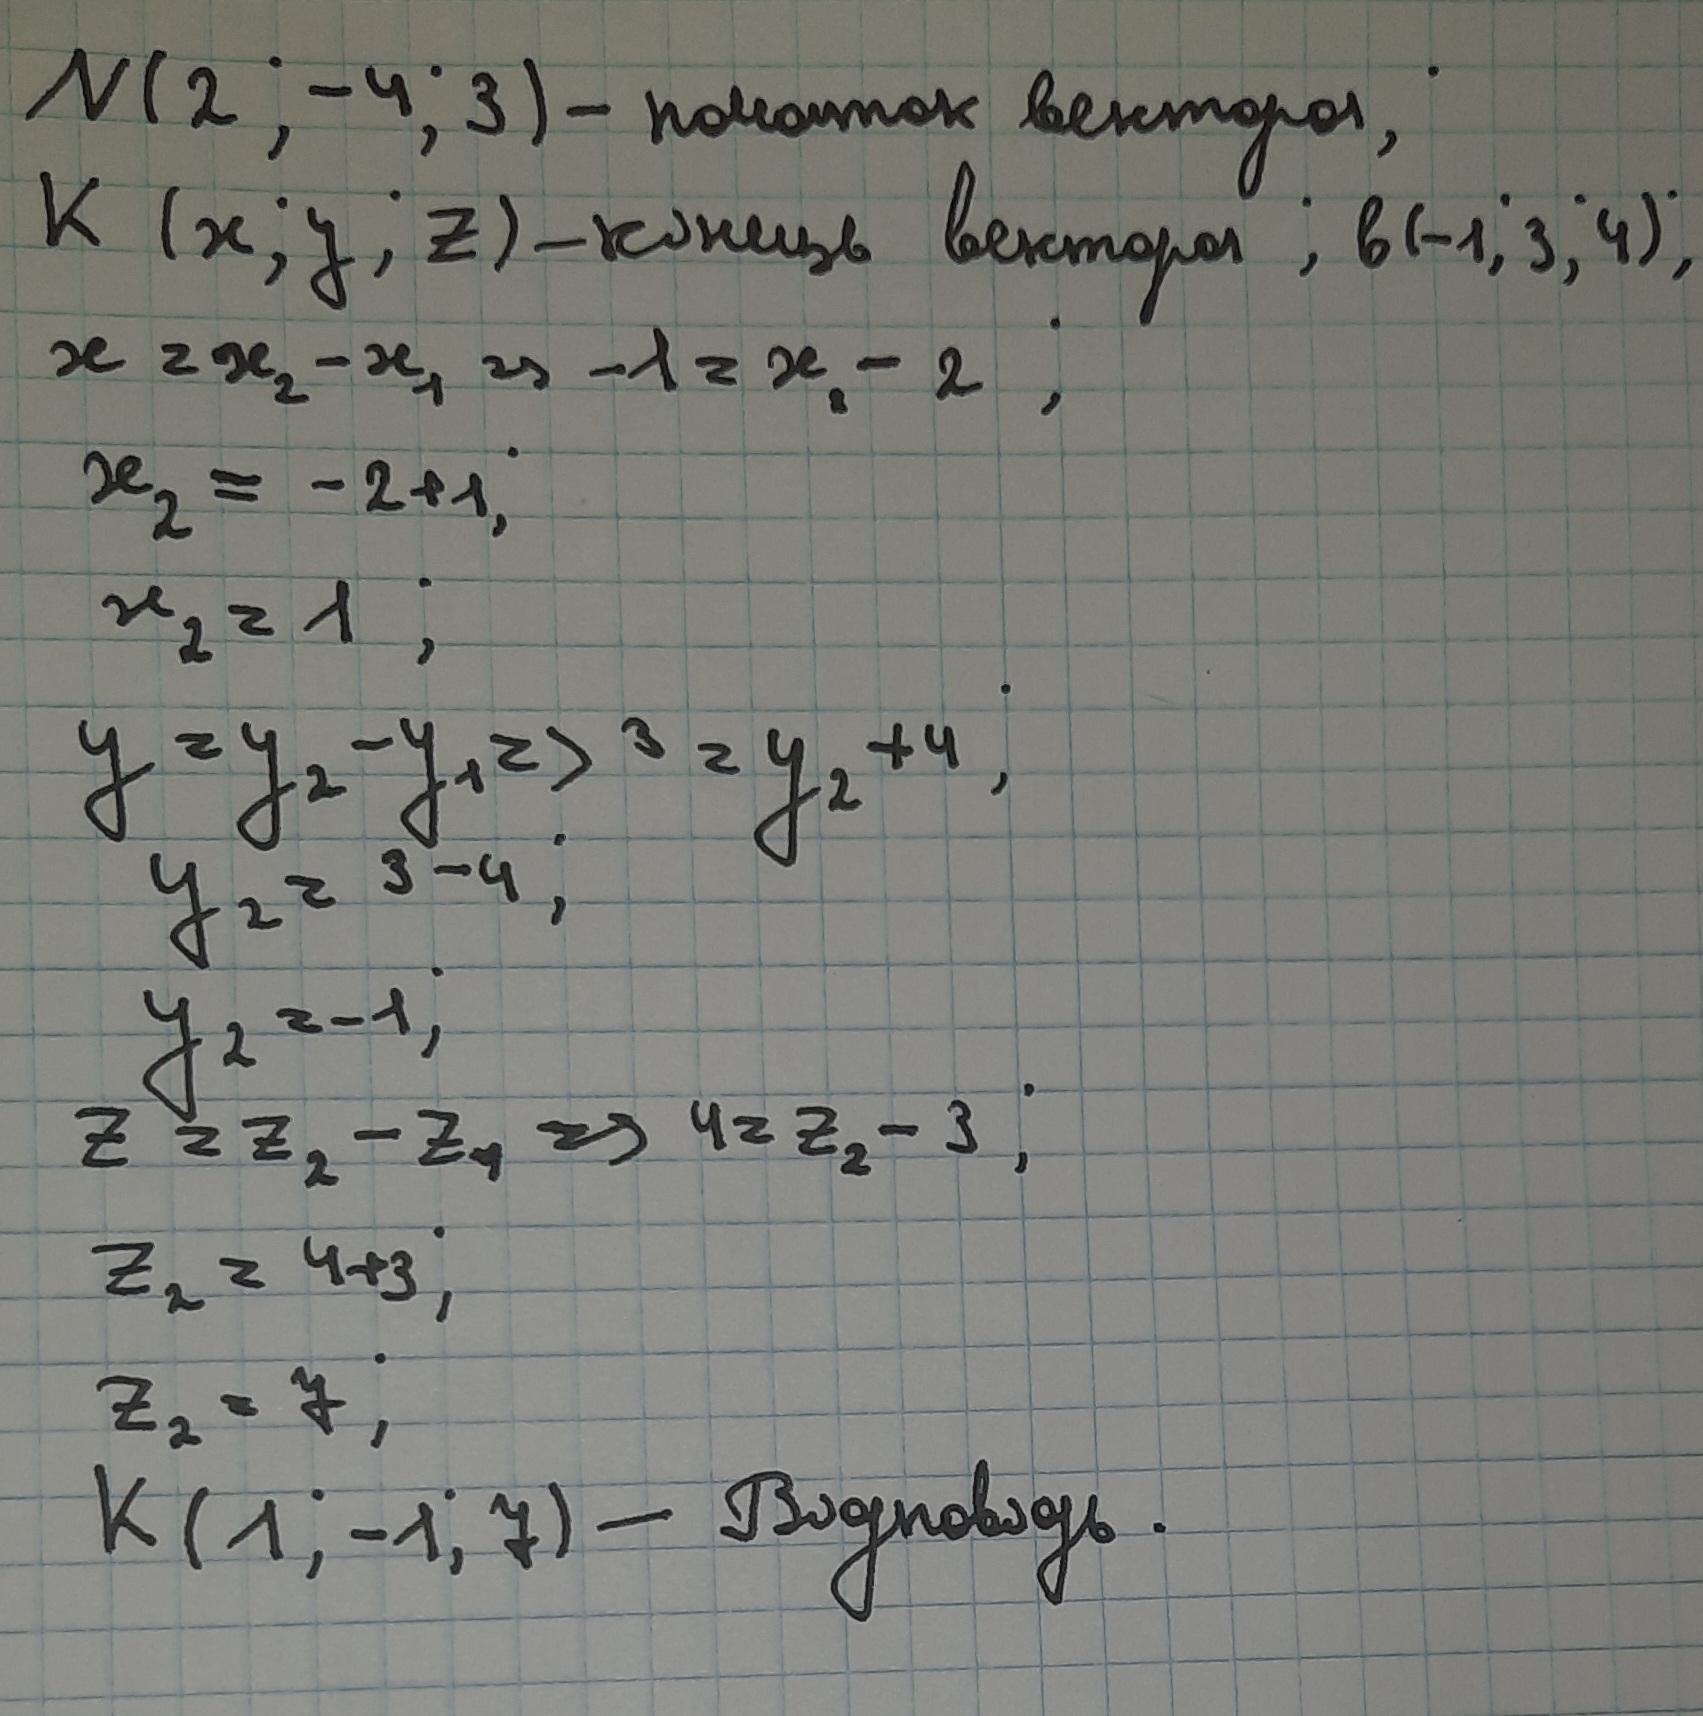 N(2; -4; 3) - початок вектора;
K (x; y; z) - кінець вектора; в(-1; 3; 4);
x = x₂ - x₁ => -1 = x. - 2 ;
x₂ = -2+1;
x₂ = 1 ;
y = y₂ - y₁ => 3 = y₂ + 4;
y₂ = 3 - 4;
y₂ = -1;
z = z₂ - z₁ => 4 = z₂ - 3 ;
z₂ = 4+3;
z₂ = 7;
K (1; -1; 7) - Відповідь.